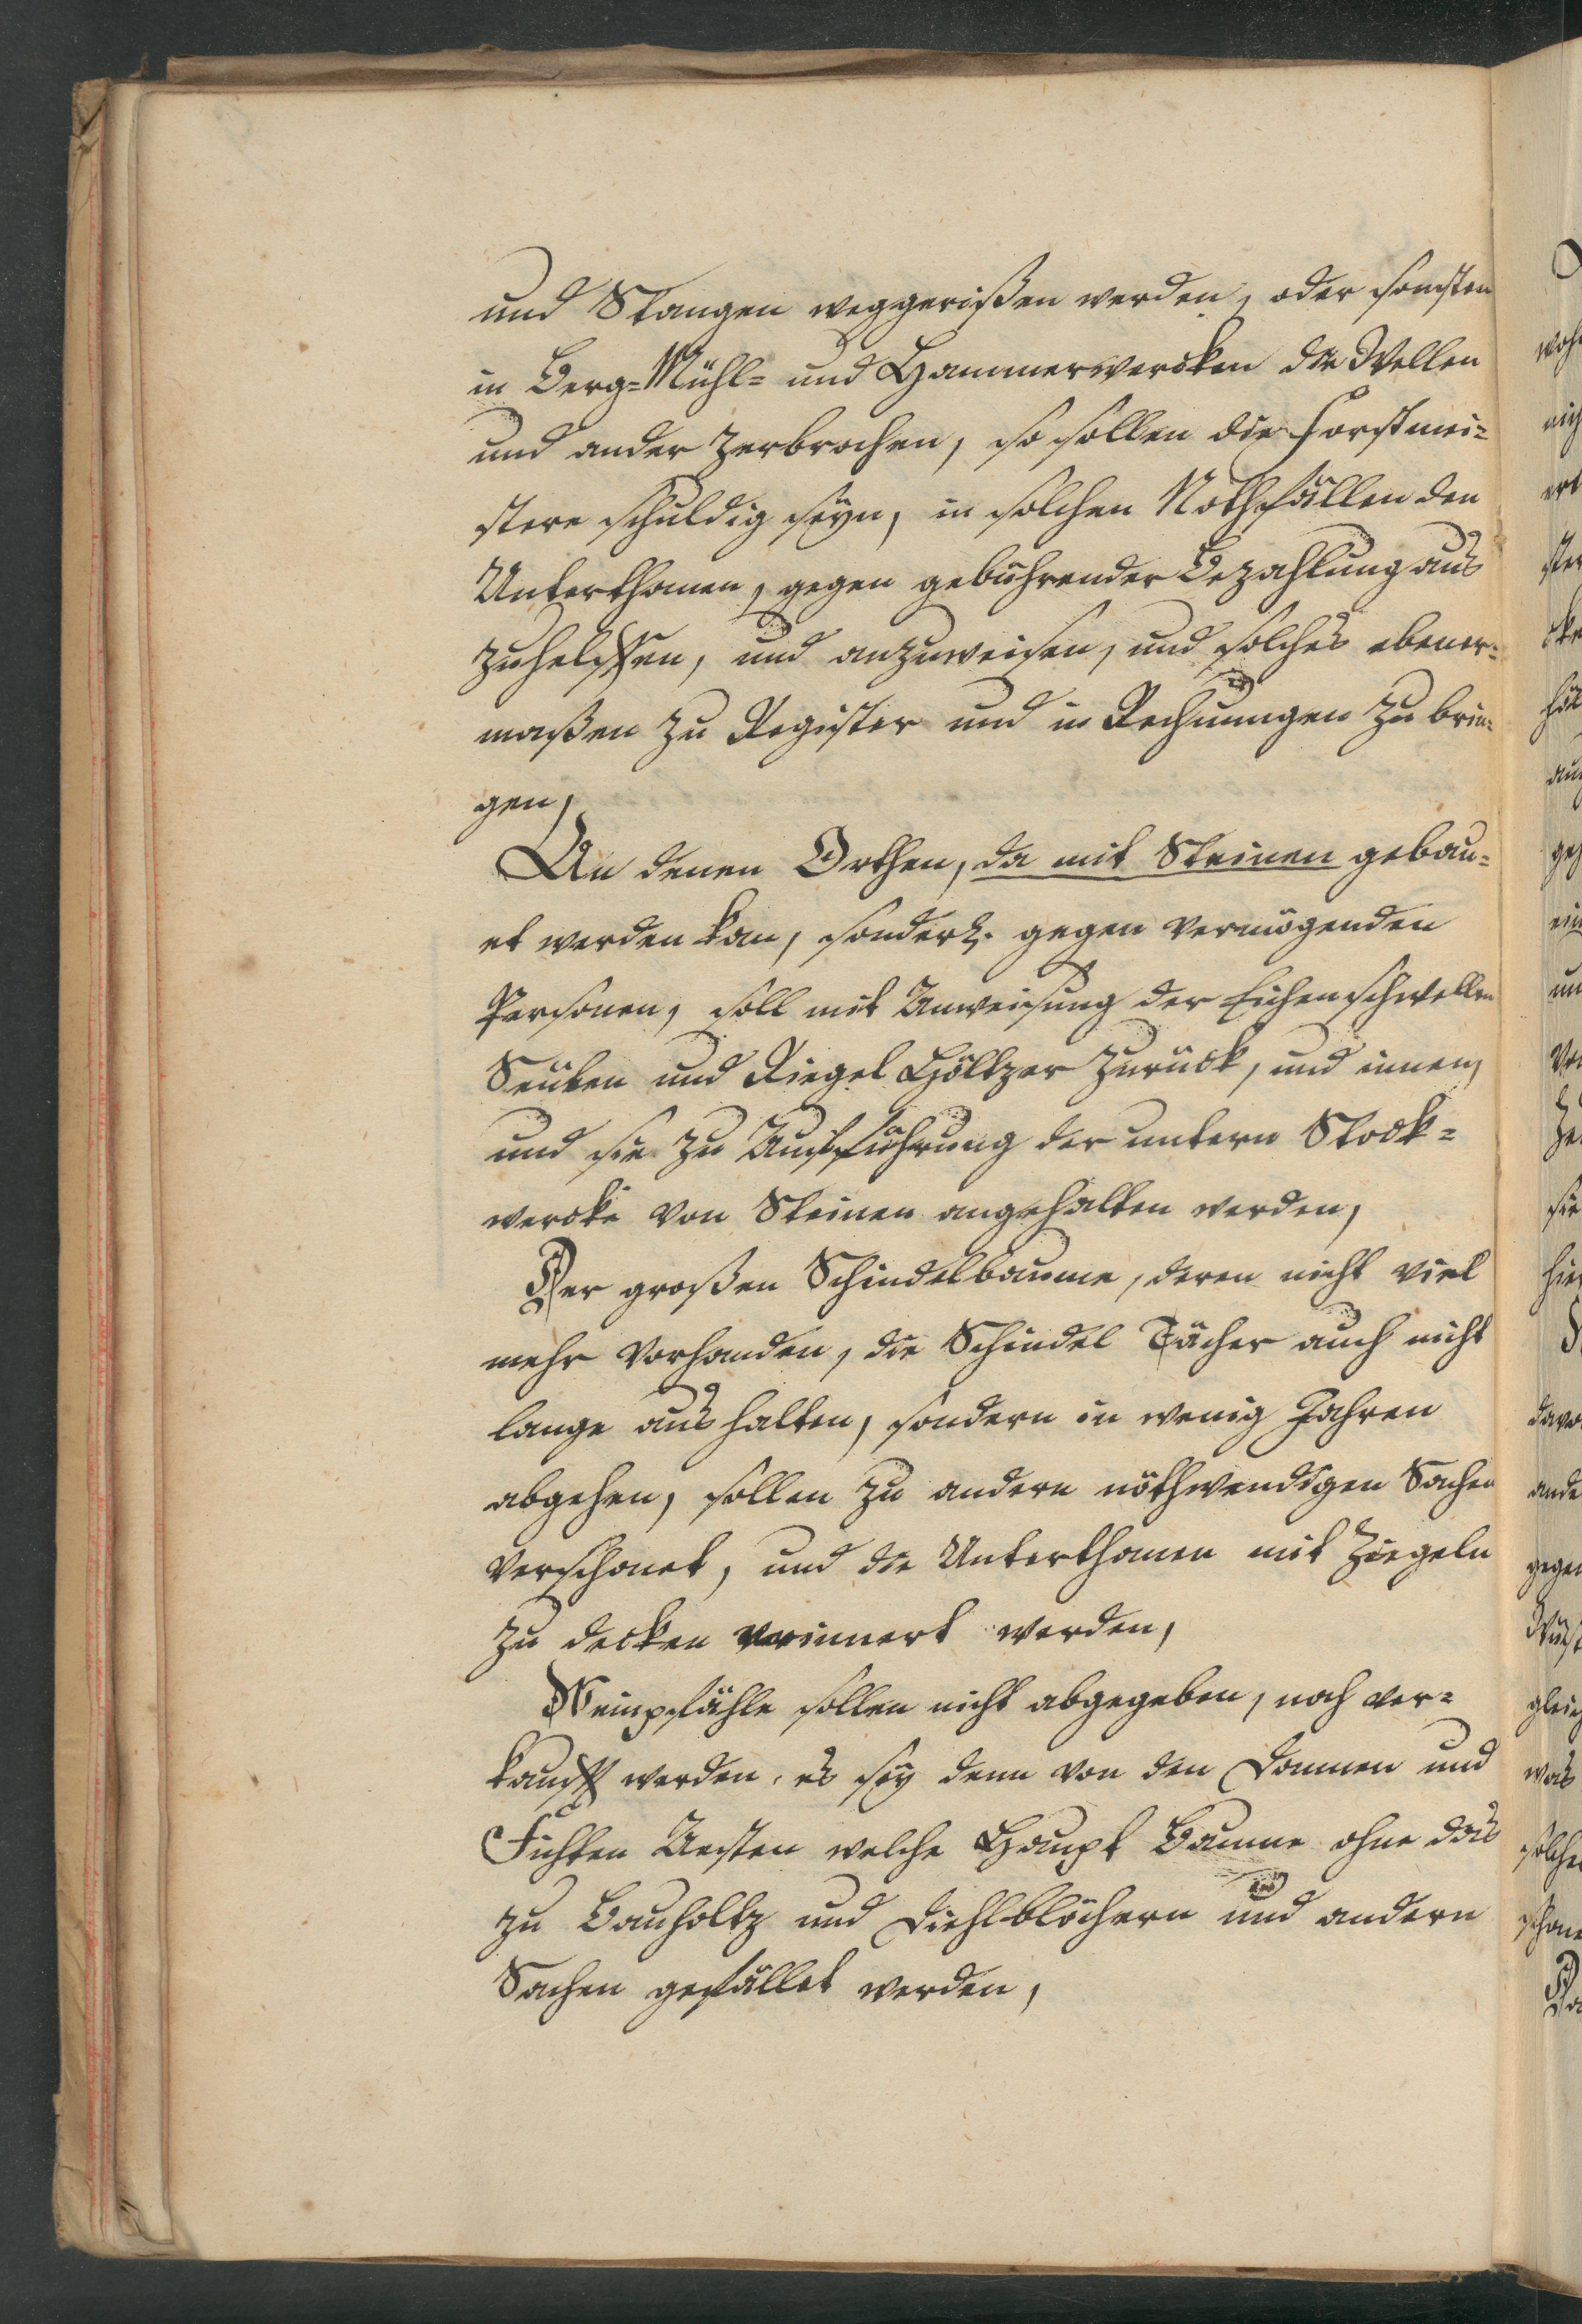 und Stangen weggerißen werden, oder sonsten
in Berg-Mühl- und Hammerwercken die Wellen
und ander zerbrochen, so sollen die Forstmei-
stere schuldig seyn, in solchen Nothfällen den
Unterthanen, gegen gebührender Bezahlung aus
zuhelffen, und anzuweisen, und solches ebener-
maßen zu Register und in Rechnungen zu brin-
gen,
An denen Orthen, da mit Steinen gebau-
et werden kan, sonderl. gegen vermögenden
Personen, soll mit Anweisung der Eichenschwellen
Seulen und Riegel Höltzer zurück, und innen,
und sie zu Aufführung der untern Stock-
wercke von Steinen angehalten werden,
Der großen Schindelbaume, deren nicht viel
mehr vorhanden, die Schindel Tächer auch nicht
lange aus halten, sondern in wenig Jahren
abgehen, sollen zu andern nöthwendigen Sachen
verschonet, und die Unterthanen mit Ziegeln
zu decken erinnert werden,
Weinpfähle sollen nicht abgegeben, noch ver-
kaufft werden, es sey denn von den Dannen und
Fichten Aesten welche Haupt Baume ohne das
zu Bauholtz und Diehlblöchern und andern
Sachen gefället werden,